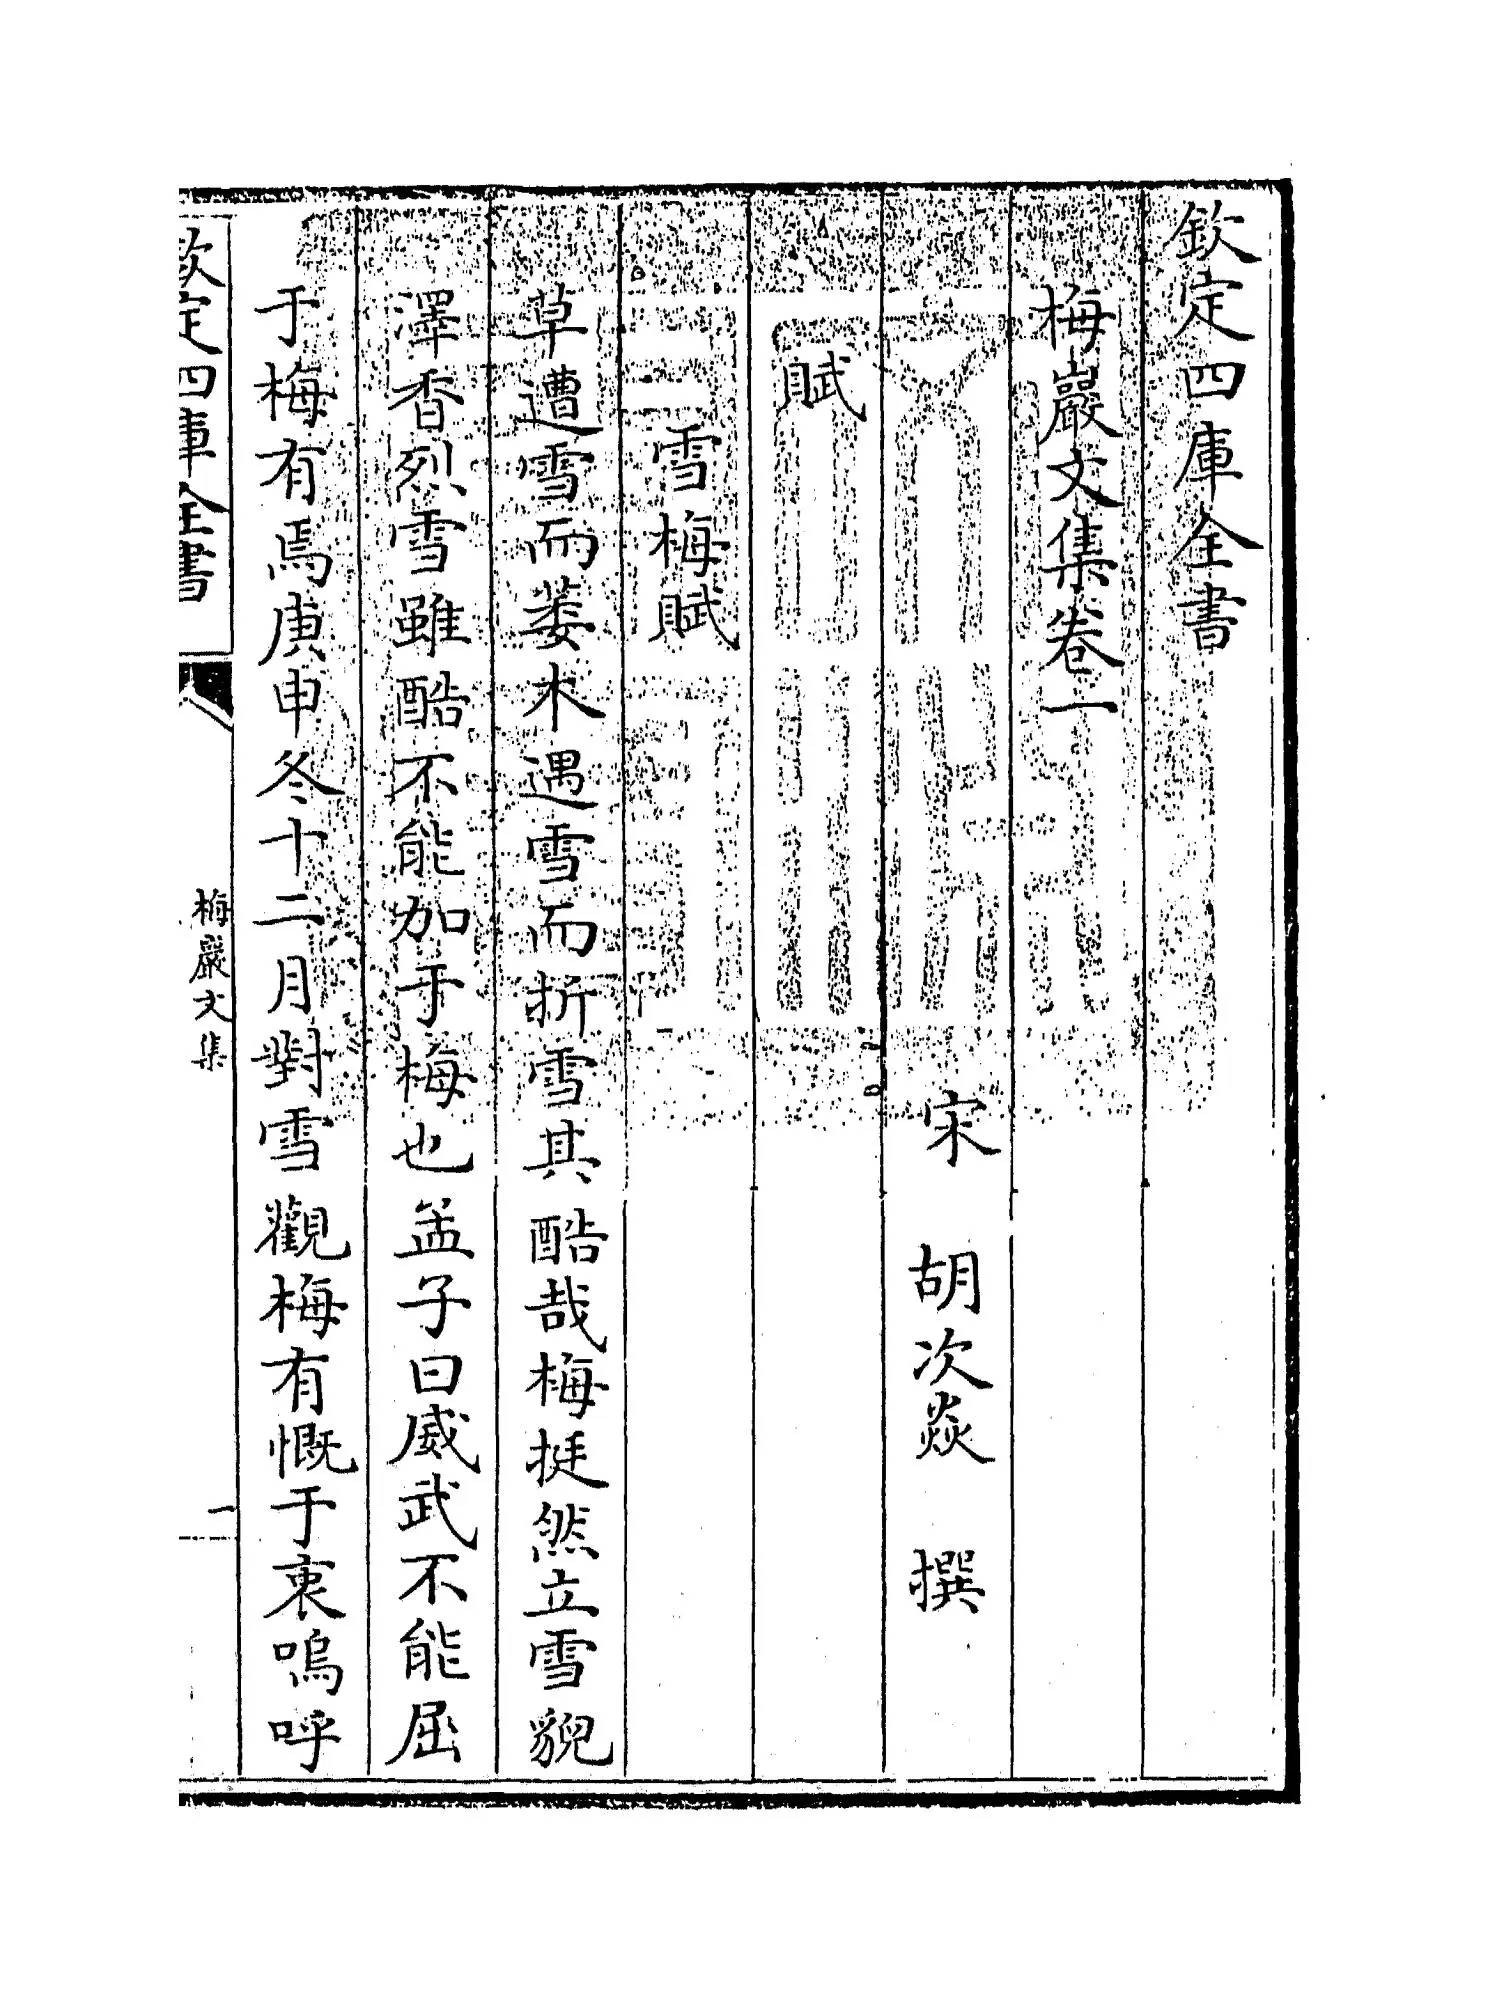 欽定四庫全書
梅巖文集卷一
宋　胡次焱　撰
賦
雪梅賦
草遭雪而萎木遇雪而折雪其酷哉梅挺然立雪貌
澤香烈雪雖酷不能加于梅也孟子曰威武不能屈
于梅有焉庚申冬十二月對雪觀梅有慨于衷嗚呼
欽定四庫全書
梅巖文集
一